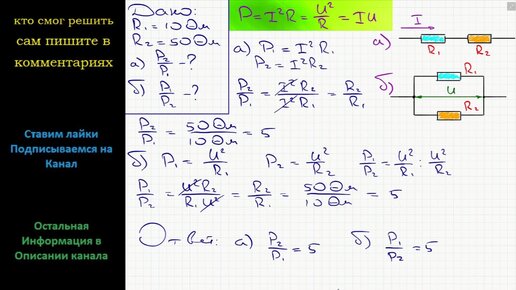 кто смог решить
сам пишите в
комментариях
Ставим лайки
Подписываемся на
Канал
Остальная
Информация в
Описании канала
Дано:
R₁ = 10 Ом
R₂ = 50 Ом
а) P₂/P₁ - ?
б) P₁/P₂ - ?
P = I²R = U²/R = IU
а) P₁ = I²R₁
P₂ = I²R₂
P₂/P₁ = I²R₂/I²R₁ = R₂/R₁
P₂/P₁ = 50 Ом/10 Ом = 5
б) P₁ = U²/R₁ P₂ = U²/R₂ P₁/P₂ = U²/R₁ : U²/R₂
P₁/P₂ = U²R₂/R₁U² = R₂/R₁ = 50 Ом/10 Ом = 5
Ответ: а) P₂/P₁ = 5 б) P₁/P₂ = 5
а) I
R₁ R₂
б) R₁
U
R₂